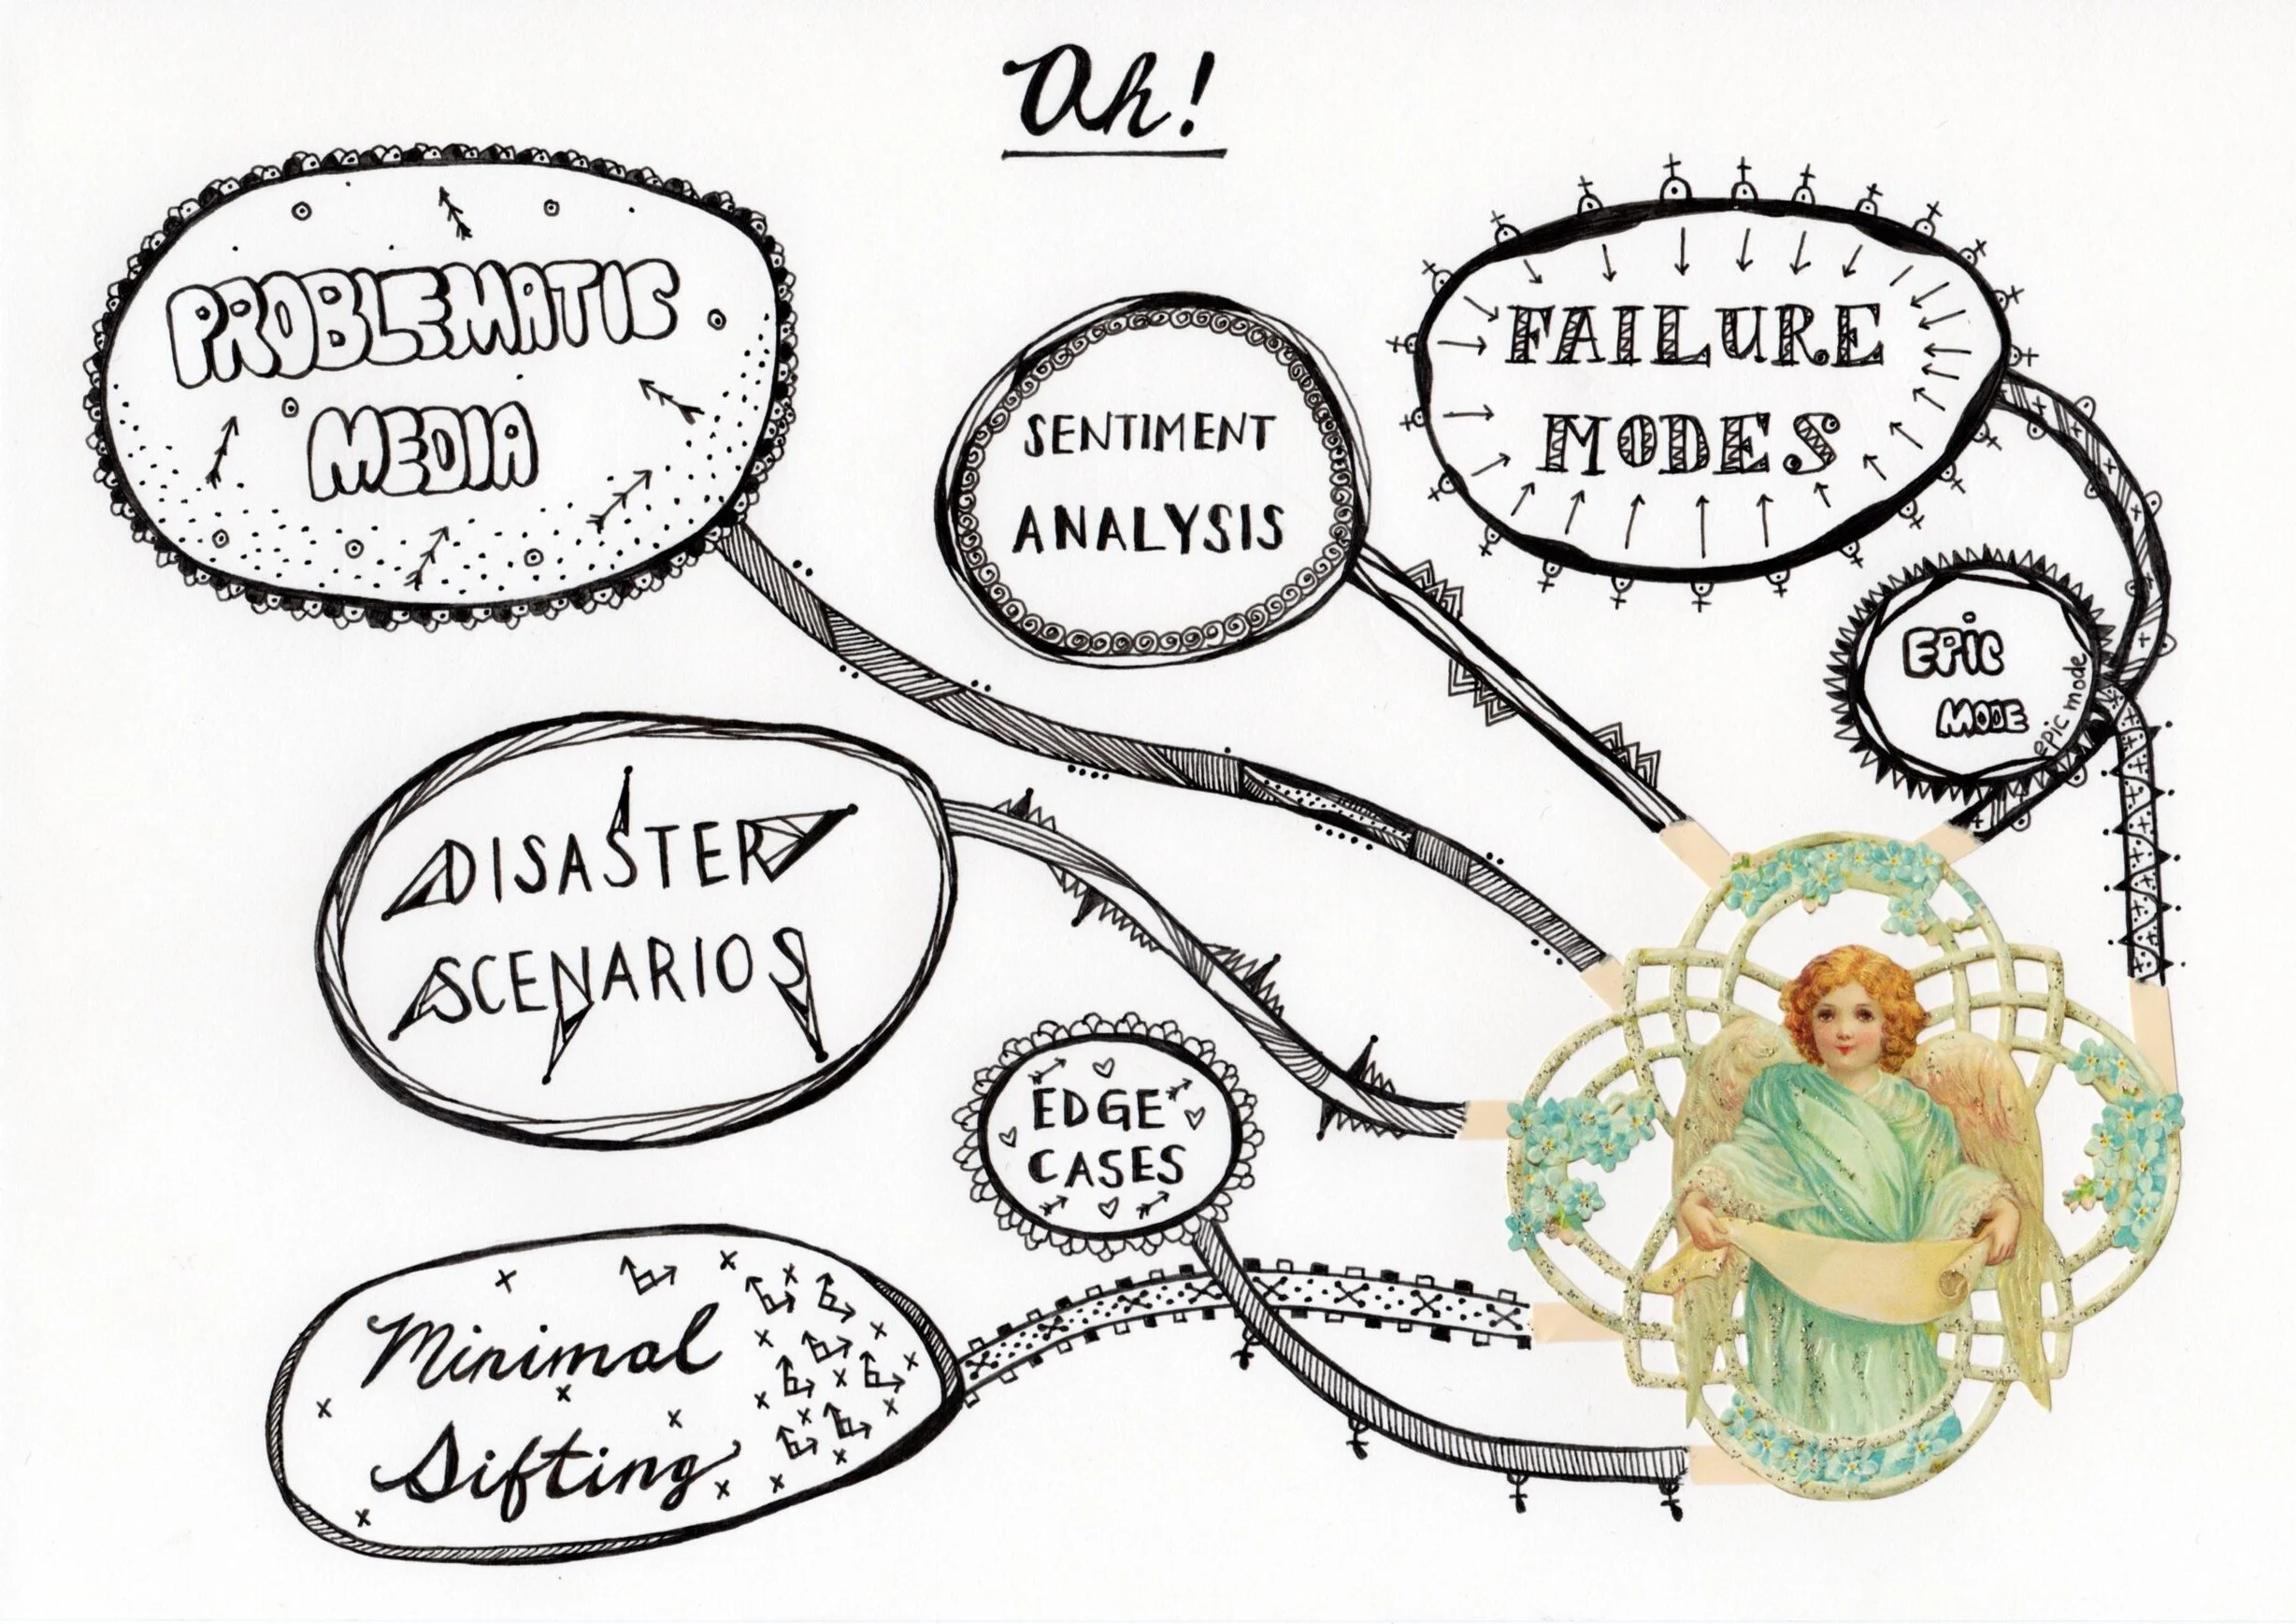 Oh!
PROBLEMATIC
MEDIA
SENTIMENT
ANALYSIS
FAILURE
MODES
EPiC
MODE
epic mode
DISASTER
SCENARIOS
EDGE
CASES
Minimal
Sifting